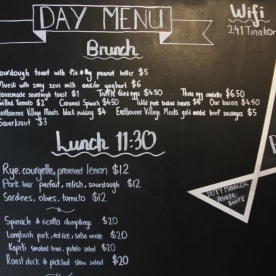 DAY MENU
Wifi
241 Tinakor
Brunch
Sourdough toast with peanut butter $5
Muesli with zany zeus milk and/or yoghurt $6
Homemade sourdough toast $1 Twenty $4.50 Three egg omelette $6.50
Grilled Tomato $2 Creamed Spinach $4.50 Wild pork $4.50 Our bacon $4.50
Eastbourne Village Meats black pudding $4 Eastbourne Village Meats gold medal beef sausages $5
Sauerkraut $3
Lunch 11:30
Rye, courgette, preserved lemon $12
Pork liver parfait, relish, sourdough $12
Sardines, olives, tomato $12
Spinach & ricotta dumplings $20
Longbush pork, red rice, salsa verde $20
Kapiti smoked tuna, potato salad $20
Roast duck & pickled slaw salad $20
DUTY MANAGER